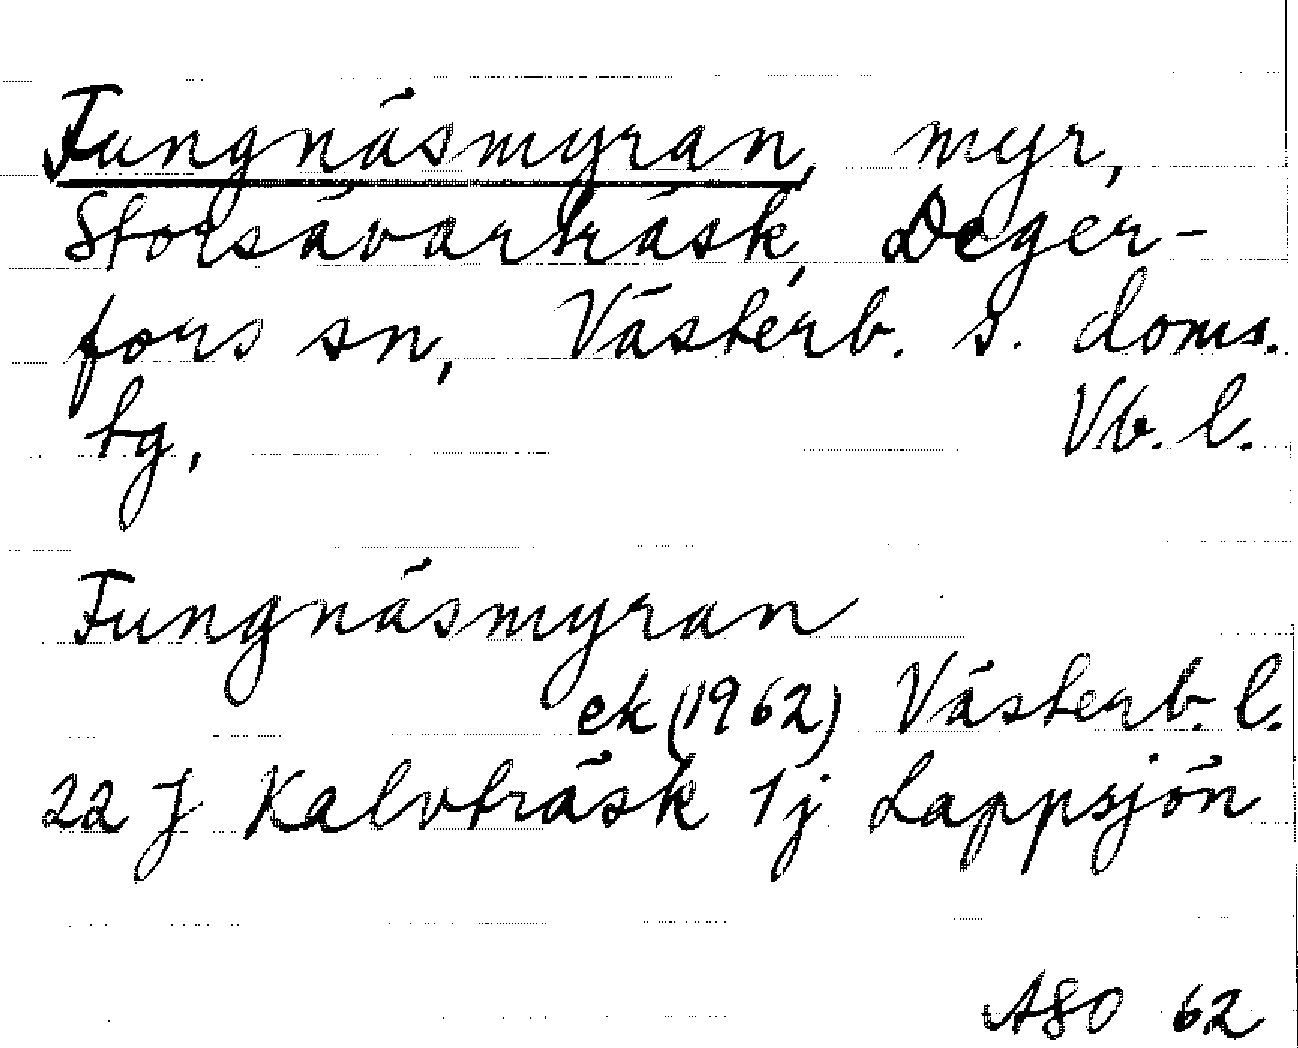 Tungnäsmyran, myr,
Storsävarträsk, Deger-
fors sn, Västerb. s. doms.
bg, Vb. l.
Tungnäsmyran
ek (1962) Västerb. l.
22 J Kalvträsk 1j Lappsjön
ASO 62